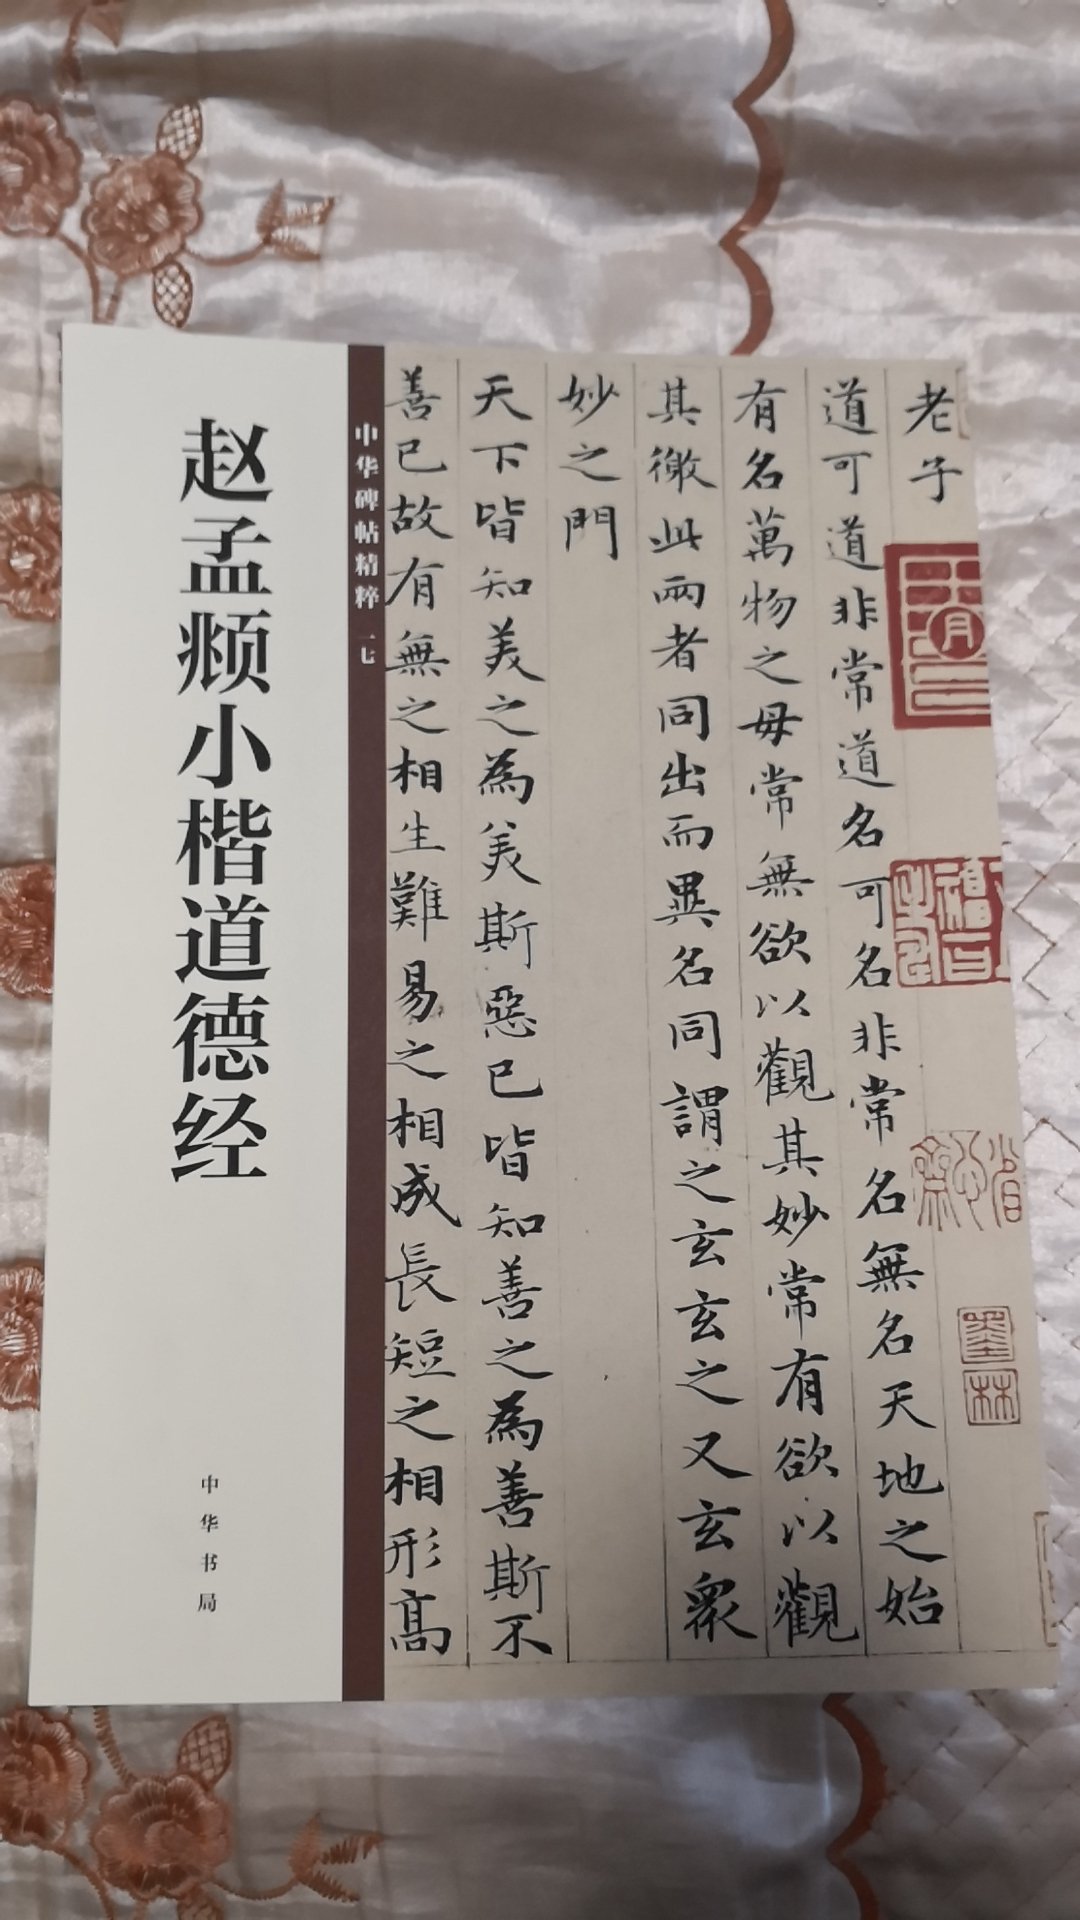 赵孟頫小楷道德经
中华书局
中华碑帖精粹 一七
老子
道可道非常道名可名非常名無名天地之始
有名萬物之母常無欲以觀其妙常有欲以觀
其徼此兩者同出而異名同謂之玄玄之又玄衆
妙之門
天下皆知美之為美斯惡已皆知善之為善斯不
善已故有無之相生難易之相成長短之相形高
墨林